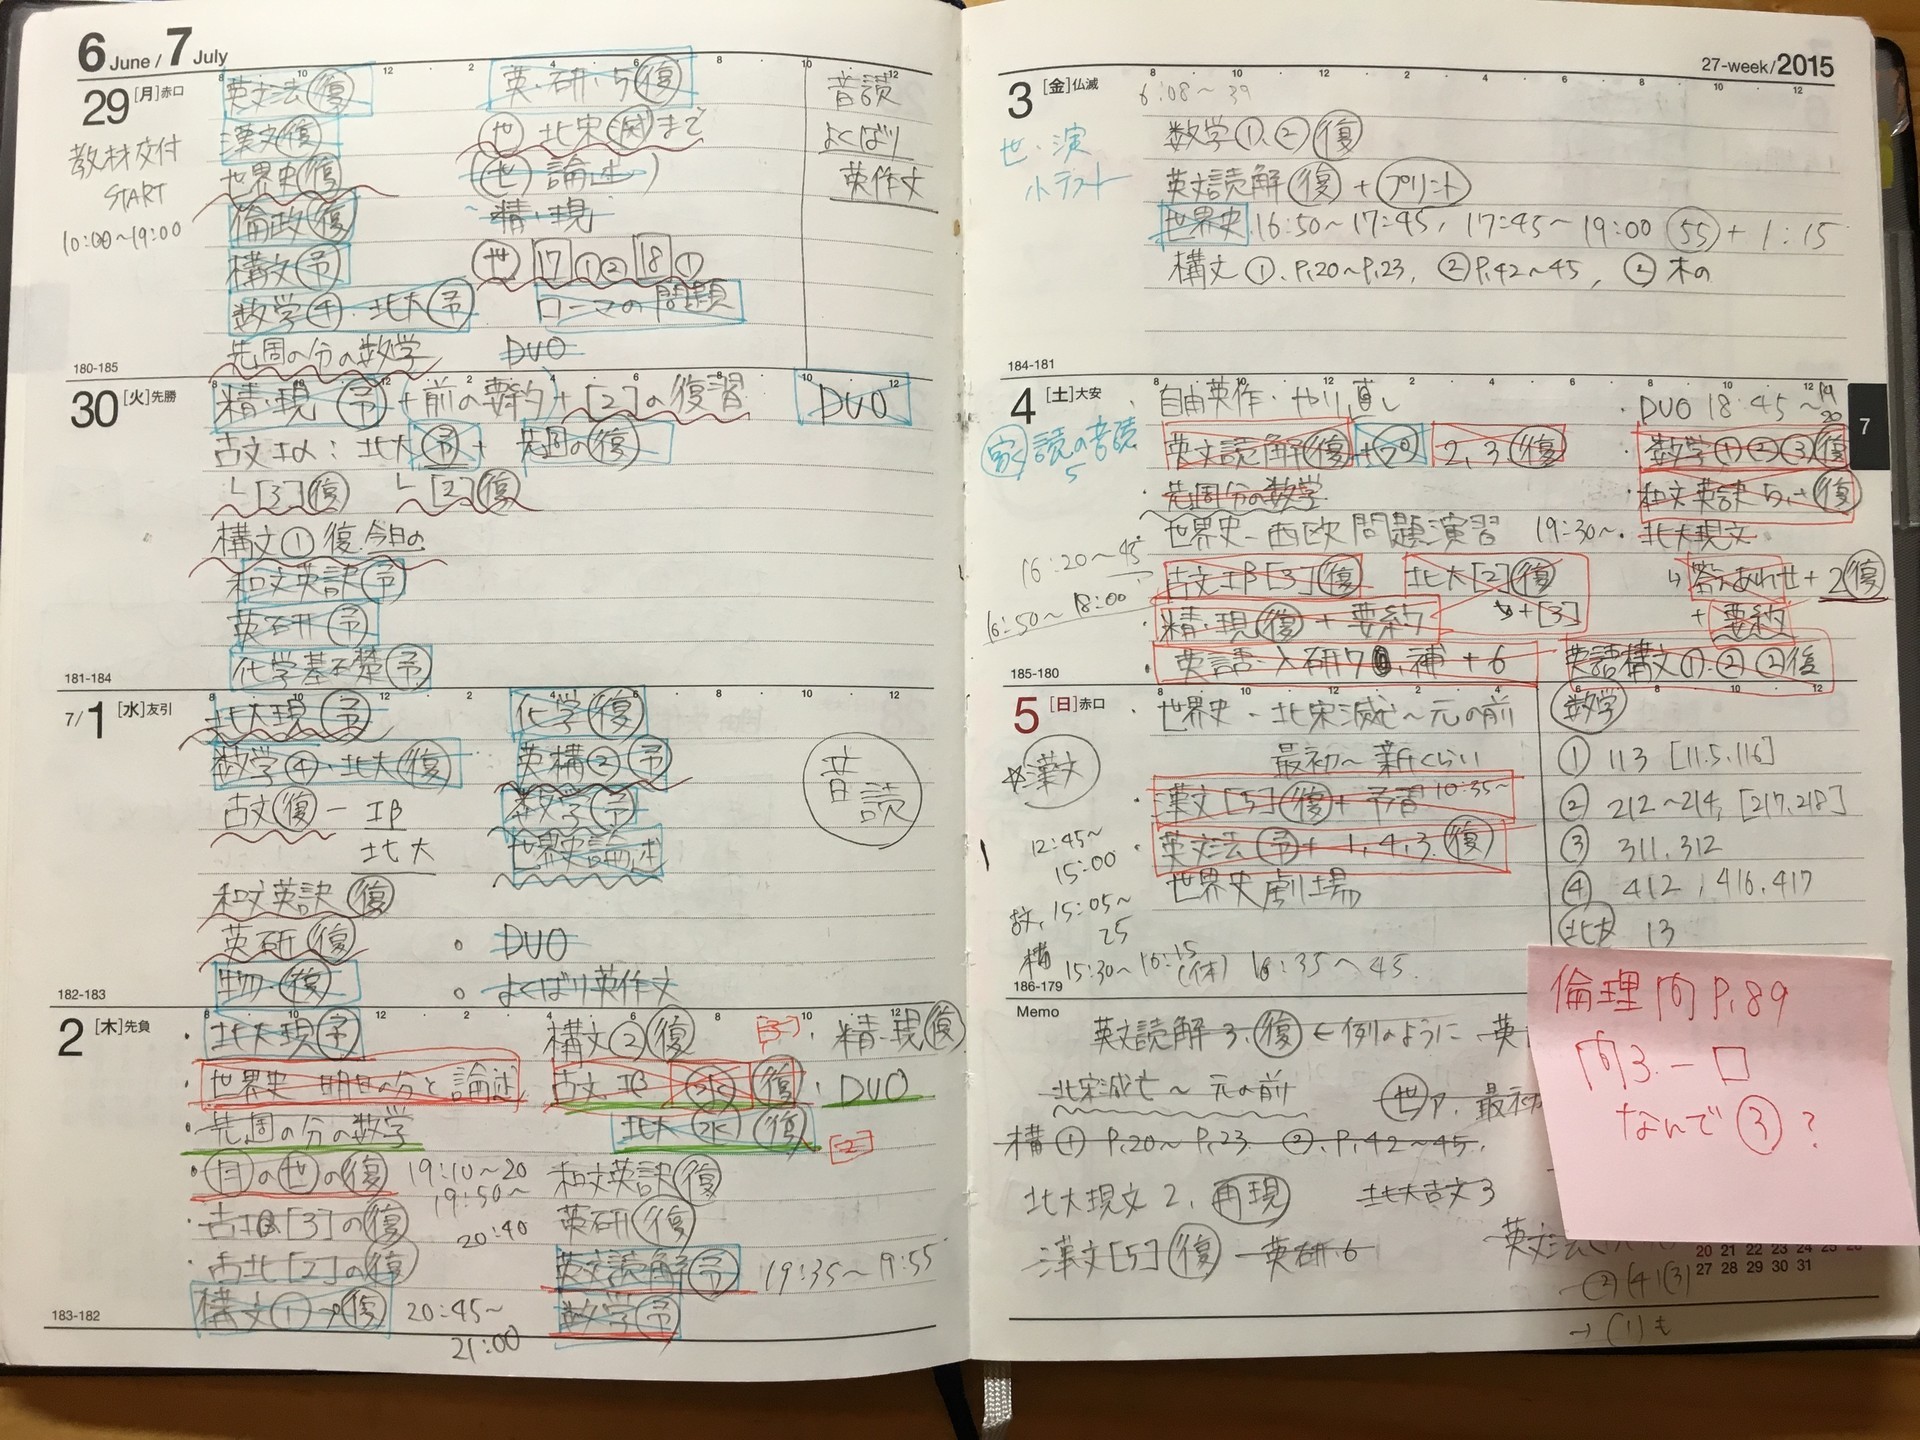 6 June / 7 July
29 [月]赤口
教材交付
START
10:00~19:00
英文法 復
漢文 復
世界史 復
倫政 復
構文 予
数学④・北大 予
先週の分の数学
英・研・5 復
世 北宋(滅)まで
(世 論述)
精・現
世 17 ① ② 18 ①
コーマの問題
DUO
音読
よくばり
英作文
180-185
30 [火]先勝
精・現 予 + 前の要約 + [2]の復習
DUO
古文ⅠA: 北大 予 + 先週の 復
└[3] 復 └[2] 復
構文① 復 今日の
和文英訳 予
英研 予
化学基礎 予
181-184
7/1 [水]友引
北大現 予
数学④・北大 復
古文 復 ー ⅠB
北大
和文英訳 復
英研 復
物 復
化学 復
英構② 予
数学 予
世界史論述
DUO
よくばり英作文
音読
182-183
2 [木]先負
北大現 予
世界史 明日の分と論述
先週の分の数学
月の世の復 19:10~20
19:50~
20:40
[3]の 復
古北[2]の 復
構文①→ 復 20:45~
21:00
構文② 復
古文ⅠB 水 復
北大 水 復
和文英訳 復
英研 復
英文読解 予 19:35~19:55
数学 予
[3]
精・現 復
DUO
[2]
183-182
27-week/2015
3 [金]仏滅
世・演
小テスト
6:08~39
数学①、② 復
英文読解 復 + プリント
世界史 16:50~17:45, 17:45~19:00 55 + 1:15
構文 ①. P.20~P.23, ②P.42~45, ② 木の
184-181
4 [土]大安
家 読の音読
5
16:20~45
16:50~18:00
自由英作・やり直し
英文読解 復 +プ 2,3 復
先週分の数学
世界史 - 西欧 問題演習
古文ⅠB[3] 復 北大[2] 復
+[3]
精・現 復 + 要約
DUO 18:45~19
20
数学①②③ 復
和文英訳 復
19:30~ 北大現文
↳ 答えあわせ + 2 復
+ 要約
英語構文①・②②復
185-180
5 [日]赤口
☆漢文
12:45~
15:00
15:05~
25
構 15:30~16:15
(休) 16:35~45
世界史 - 北宋滅亡~元の前
最初~新くらい
漢文[5] 復 + 予習 10:35~
英文法 予 + 1,4,3 復
世界史劇場
数学
① 113 [115,116]
② 212~214, [217,218]
③ 311, 312
④ 412, 416, 417
北大 13
186-179
Memo
英文読解 3. 復 ← 例のように 英
北宋滅亡~元の前 世ア. 最初
構 ① P.20~P.23 ②. P.42~45.
北大現文 2, 再現 北大古文3
漢文[5] 復 英研・6 英文法
② (4)(3)
→(1)も
倫理 問 P.89
問3. - □
なんで ③ ?
20 21 22 23 24 25
27 28 29 30 31
7